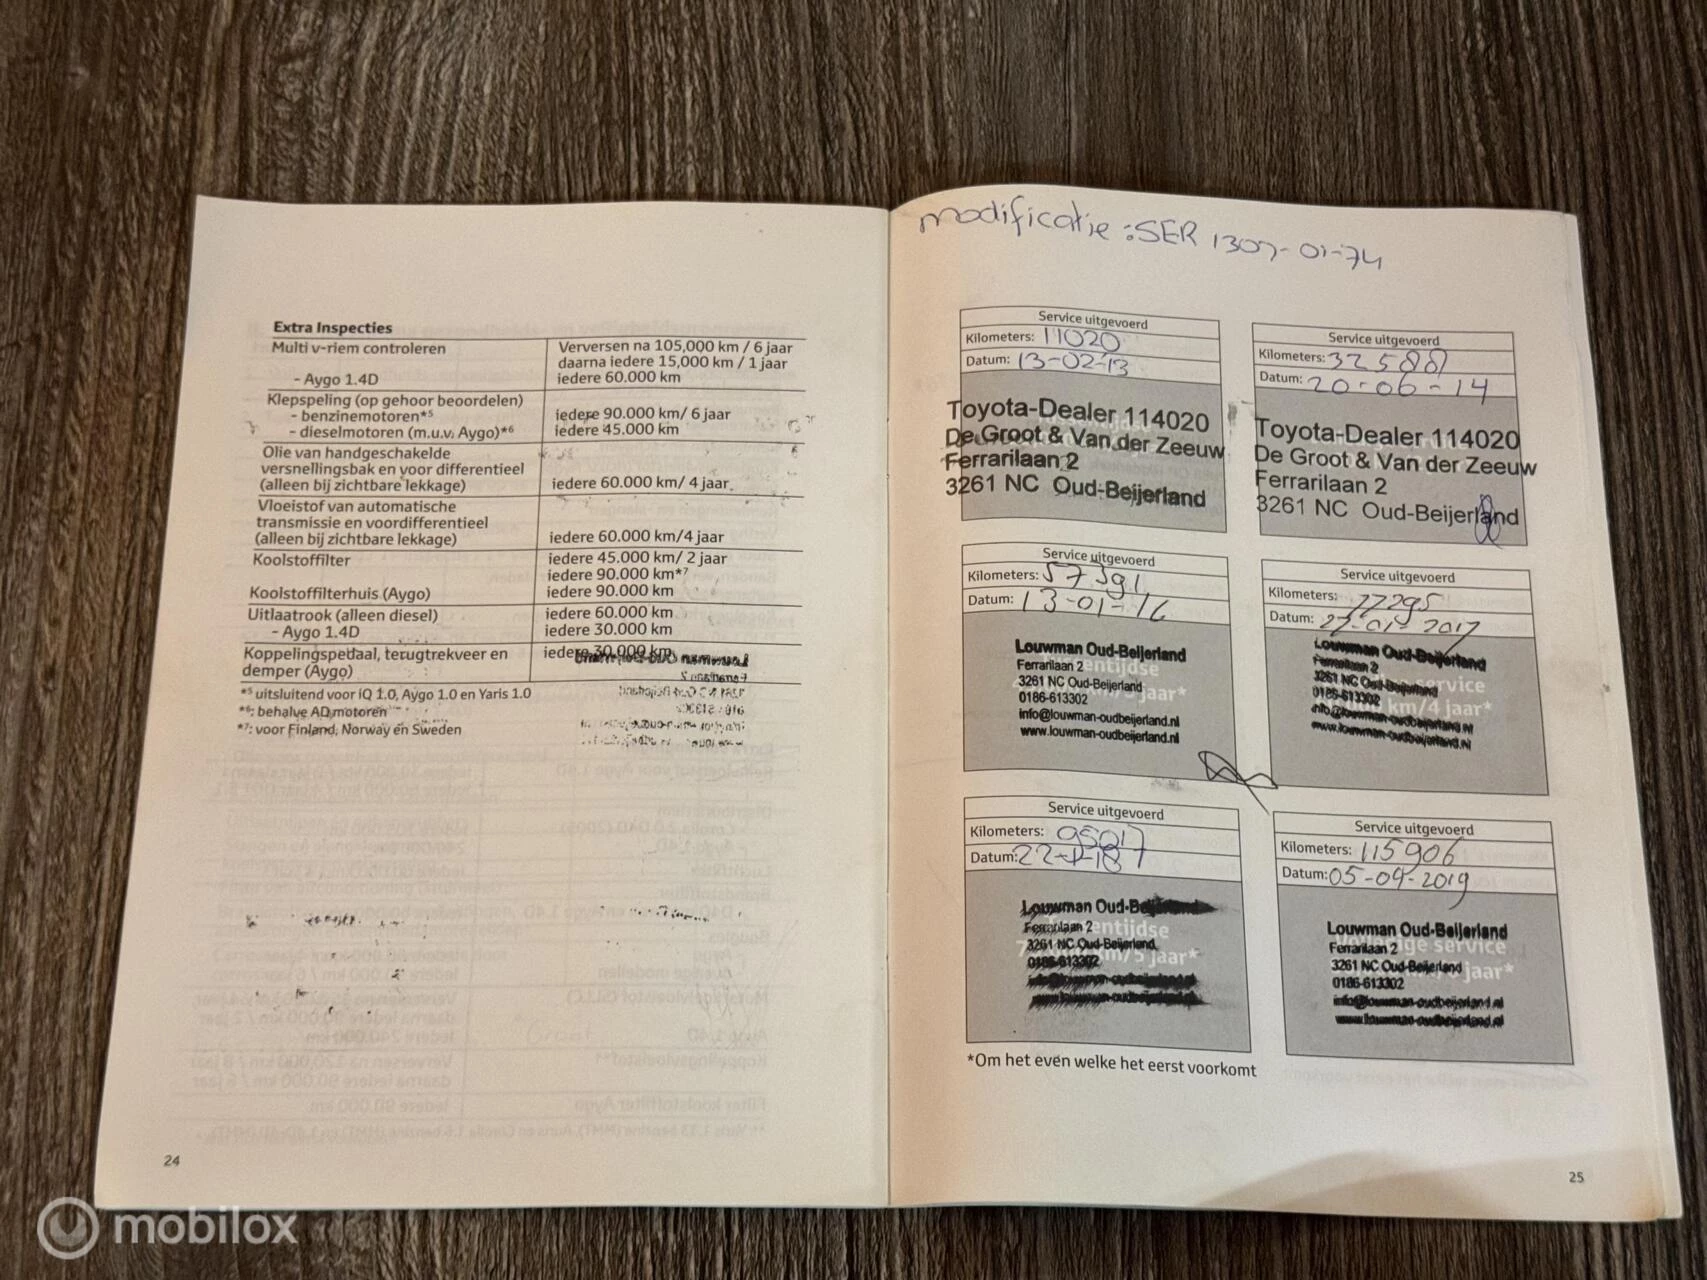 Extra Inspecties
Multi v-riem controleren
Verversen na 105,000 km / 6 jaar
daarna iedere 15,000 km / 1 jaar
- Aygo 1.4D
iedere 60.000 km
Klepspeling (op gehoor beoordelen)
- benzinemotoren*5
iedere 90.000 km/ 6 jaar
- dieselmotoren (m.u.v. Aygo)*6
iedere 45.000 km
Olie van handgeschakelde
versnellingsbak en voor differentieel
(alleen bij zichtbare lekkage)
iedere 60.000 km/ 4 jaar
Vloeistof van automatische
transmissie en voordifferentieel
(alleen bij zichtbare lekkage)
iedere 60.000 km/4 jaar
Koolstoffilter
iedere 45.000 km/ 2 jaar
iedere 90.000 km*7
Koolstoffilterhuis (Aygo)
iedere 90.000 km
Uitlaatrook (alleen diesel)
iedere 60.000 km
- Aygo 1.4D
iedere 30.000 km
Koppelingspedaal, terugtrekveer en
demper (Aygo)
iedere 30.000 km
*5 uitsluitend voor iQ 1.0, Aygo 1.0 en Yaris 1.0
*6: behalve AD motoren
*7: voor Finland, Norway en Sweden
24
modificatie : SER 1307-01-74
Service uitgevoerd
Kilometers: 11020
Datum: 13-02-13
Toyota-Dealer 114020
De Groot & Van der Zeeuw
Ferrarilaan 2
3261 NC Oud-Beijerland
Service uitgevoerd
Kilometers: 32588
Datum: 20-06-14
Toyota-Dealer 114020
De Groot & Van der Zeeuw
Ferrarilaan 2
3261 NC Oud-Beijerland
Service uitgevoerd
Kilometers: 57391
Datum: 13-01-16
Louwman Oud-Beijerland
Ferrarilaan 2
3261 NC Oud-Beijerland
0186-613302
info@louwman-oudbeijerland.nl
www.louwman-oudbeijerland.nl
Service uitgevoerd
Kilometers: 77295
Datum: 27-01-2017
Louwman Oud-Beijerland
Ferrarilaan 2
3261 NC Oud-Beijerland
0186-613302
info@louwman-oudbeijerland.nl
www.louwman-oudbeijerland.nl
Service uitgevoerd
Kilometers: 95017
Datum: 22-1-18
Louwman Oud-Beijerland
Ferrarilaan 2
3261 NC Oud-Beijerland
0186-613302
info@louwman-oudbeijerland.nl
www.louwman-oudbeijerland.nl
Service uitgevoerd
Kilometers: 115906
Datum: 05-04-2019
Louwman Oud-Beijerland
Ferrarilaan 2
3261 NC Oud-Beijerland
0186-613302
info@louwman-oudbeijerland.nl
www.louwman-oudbeijerland.nl
*Om het even welke het eerst voorkomt
25
mobilox